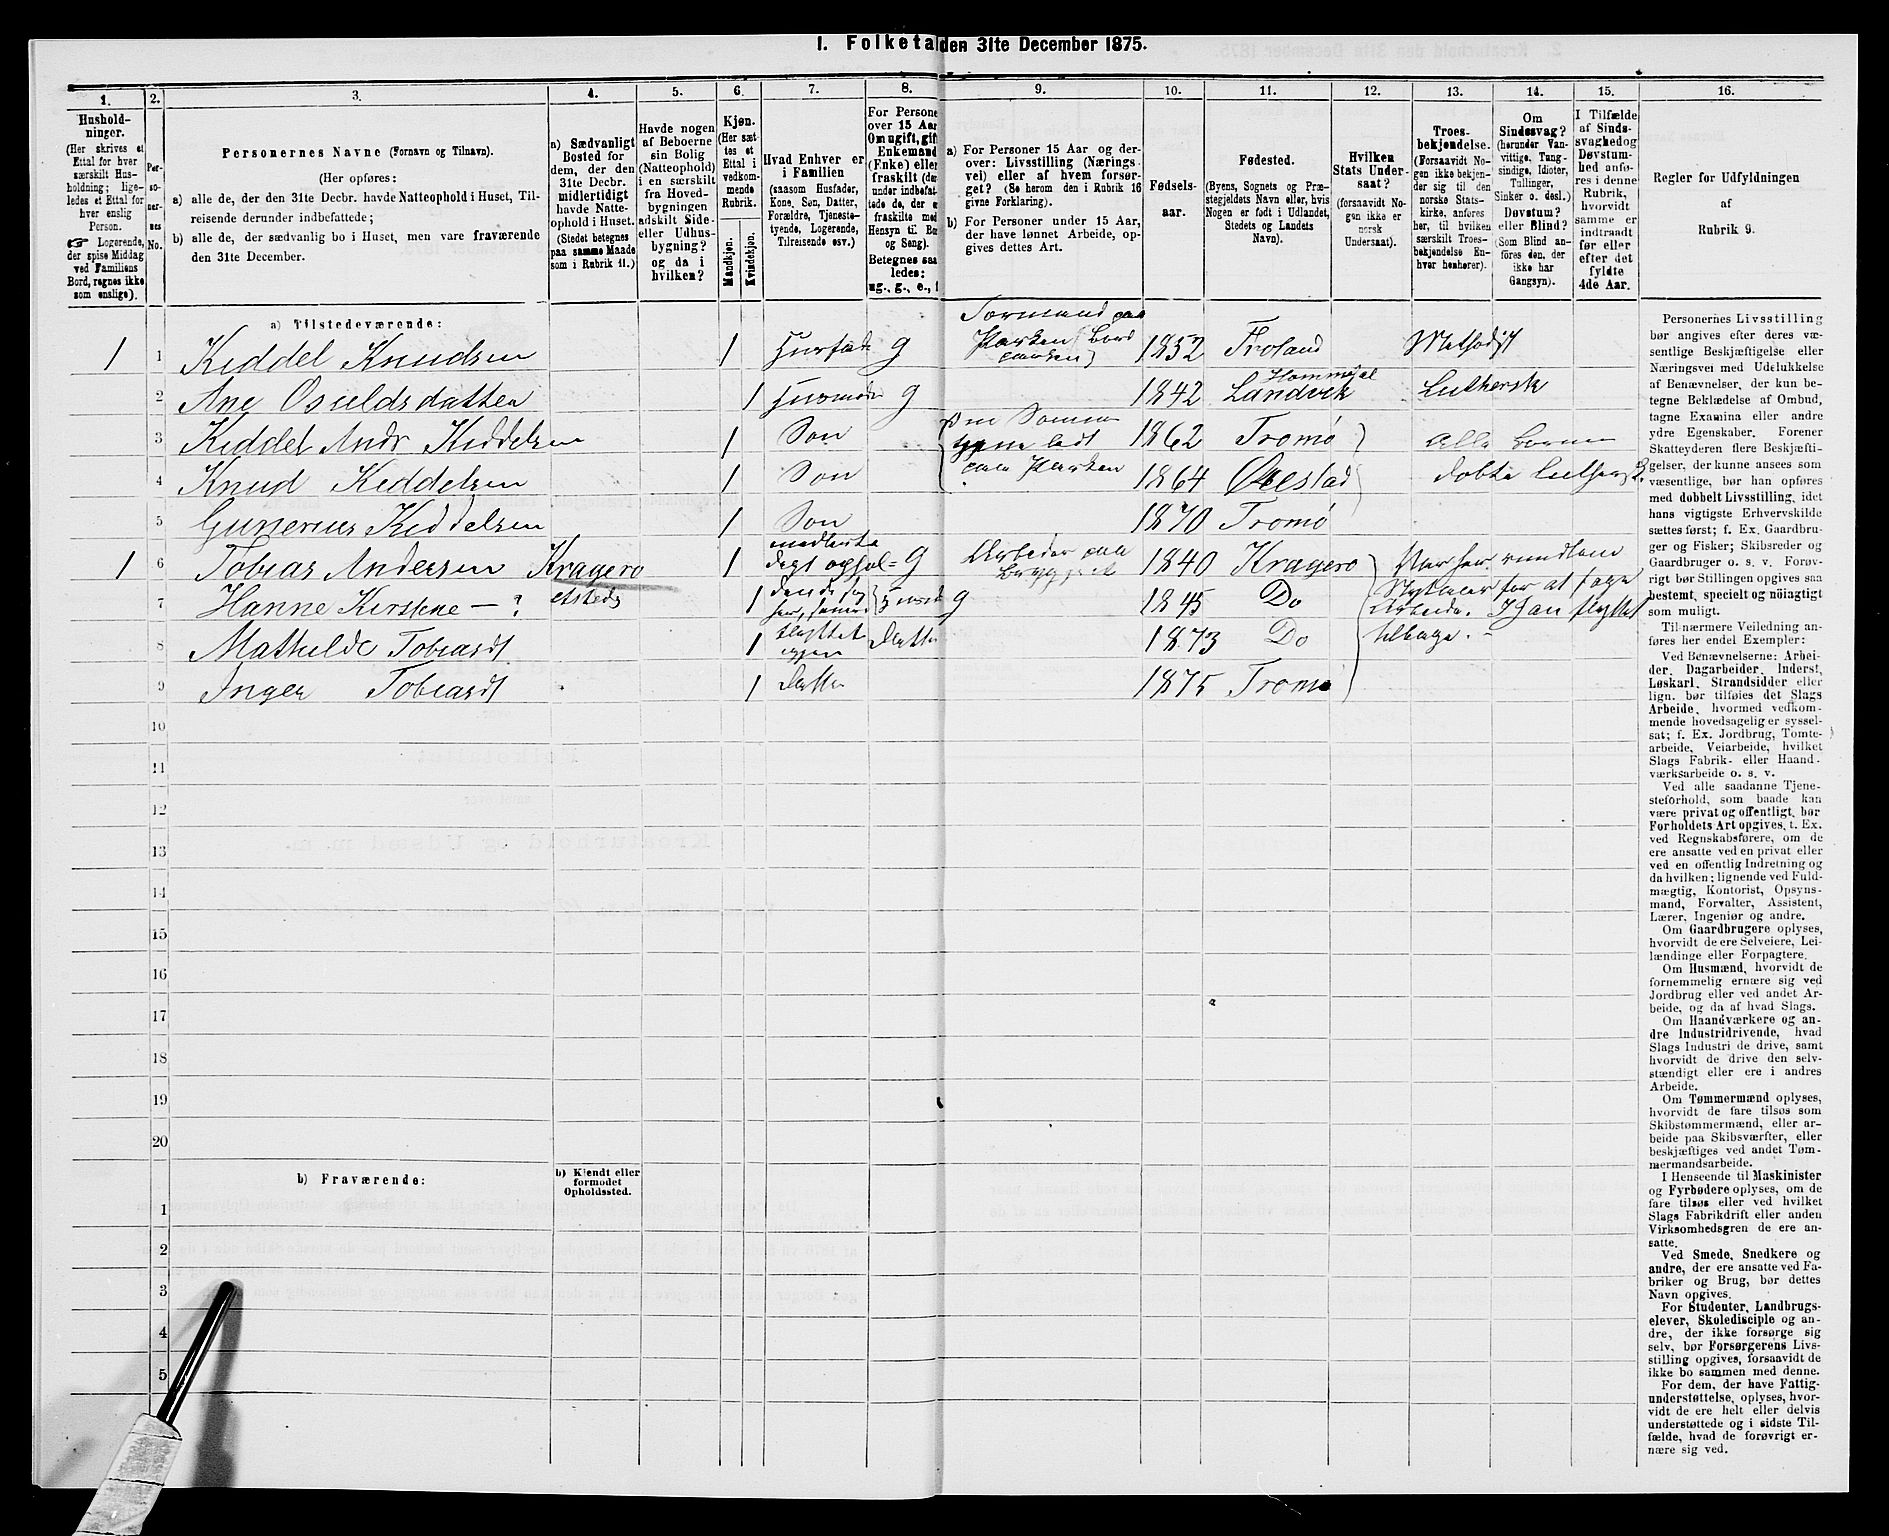 I. Folketa
den 31te December 1875.
1.
2.
3.
4.
5.
6.
7.
8.
9.
10.
11.
12.
13.
14.
15.
16.
Hushold-
ninger.
(Her skrives et
Ettal for hver
særskilt Hus-
holdning; lige-
ledes et Ettal for
hver enslig
Person.
☞ Logerende,
der spise Middag
ved Familiens
Bord, regnes ikke
som enslige).
Per-
so-
ner-
nes
No.
Personernes Navne (Fornavn og Tilnavn).
(Her opføres:
a) alle de, der den 31te Decbr. havde Natteophold i Huset, Til-
reisende derunder indbefattede;
b) alle de, der sædvanlig bo i Huset, men vare fraværende
den 31te December.
a) Sædvanligt
Bosted for
dem, der den
31te Decbr.
midlertidigt
havde Natte-
ophold i Huset.
(Stedet betegnes
paa samme Maade
som i Rubrik 11.)
Havde nogen
af Beboerne
sin Bolig
(Natteophold)
i en særskilt
fra Hoved-
bygningen
adskilt Side-
eller Udhus-
bygning?
og da i
hvilken?
Kjøn.
(Her sæt-
tes et
Ettal i
vedkom-
mende
Rubrik.
Mandkjøn.
Kvindekjøn.
Hvad Enhver er
i Familien
(saasom Husfader,
Kone, Søn, Datter,
Forældre, Tjeneste-
tyende, Logerende,
Tilreisende osv.)
For Persone
over 15 Aar
Om ugift, gift
Enkemand
(Enke) eller
fraskilt (der
under indbefat
tede de, der e
fraskilte med
Hensyn til Bo
og Seng).
Betegnes saa
ledes:
ug., g., e., f
a) For Personer 15 Aar og der-
over: Livsstilling (Nærings-
vei) eller af hvem forsør-
get? (Se herom den i Rubrik 16
givne Forklaring).
b) For Personer under 15 Aar,
der have lønnet Arbeide, op-
gives dettes Art.
Fødsels-
aar.
Fødested.
(Byens, Sognets og Præ-
stegjeldets Navn eller, hvis
Nogen er født i Udlandet,
Stedets og Landets
Navn).
Hvilken
Stats Under-
saat?
(forsaavidt No-
gen ikke er
norsk
Undersaat).
Troes-
bekjendelse.
(Forsaavidt No-
gen ikke bekjen-
der sig til den
norske Stats-
kirke, anføres
her, til hvilken
særskilt Troes-
bekjendelse En-
hver henhører).
Om
Sindssvag?
(herunder Van-
vittige, Tung-
sindige, Idioter,
Tullinger,
Sinker o. desl.)
Døvstum?
eller Blind?
(Som Blind an-
føres den, der
ikke har
Gangsyn).
I Tilfælde
af Sinds-
svaghed og
Døvstum-
hed anfø-
res i denne
Rubrik,
hvorvidt
samme er
indtraadt
før eller
efter det
fyldte
4de Aar.
Regler for Udfyldningen
af
Rubrik 9.
a) Tilstedeværende:
1 1 Kiddel Knudsen 1 Husfad g Formand paa 1852 Froland Methodist
2 Ane Osuldsdatter 1 Husmoder g 1842 Landvik Hommedal Luthersk
3 Kiddel Andr Kiddelsen 1 Søn 1862 Tromø alle
4 Knud Kiddelsen 1 Søn 1864 Øiestad døbte
5 Gunerius Kiddelsen 1 Søn 1870 Tromø
1 6 Tobias Andersen Kragerø 1 g Arbeider paa 1840 Kragerø
7 Hanne Kirstene — ? 1 g 1845 Do for at
8 Mathilde Tobiasdt 1 Datter 1873 Do tilbage. —
9 Inger Tobiasdt 1 Datter 1875 Tromø
10
11
12
13
14
15
16
17
18
19
20
b) Fraværende:
b) Kjendt eller
formodet
Opholdssted.
1
2
3
4
5
Personernes Livsstilling
bør angives efter deres væ-
sentlige Beskjæftigelse eller
Næringsvei med Udelukkelse
af Benævnelser, der kun be-
tegne Beklædelse af Ombud,
tagne Examina eller andre
ydre Egenskaber. Forener
Skatteyderen flere Beskjæfti-
gelser, der kunne ansees som
væsentlige, bør han opføres
med dobbelt Livsstilling, idet
hans vigtigste Erhvervskilde
sættes først; f. Ex. Gaardbru-
ger og Fisker; Skibsreder og
Gaardbruger o. s. v. Forøv-
rigt bør Stillingen opgives saa
bestemt, specielt og nöiagtigt
som muligt.
Til nærmere Veiledning an-
føres her endel Exempler:
Ved Benævnelserne: Arbei-
der, Dagarbeider, Inderst,
Løskarl, Strandsidder eller
lign. bør tilføies det Slags
Arbeide, hvormed vedkom-
mende hovedsagelig er syssel-
sat; f. Ex. Jordbrug, Tomte-
arbeide, Veiarbeide, hvilket
Slags Fabrik- eller Haand-
værksarbeide o. s. v.
Ved alle saadanne Tjene-
steforhold, som baade kan
være privat og offentligt, bør
Forholdets Art opgives, t. Ex.
ved Regnskabsførere, om de
ere ansatte ved en privat eller
ved en offentlig Indretning og
da hvilken; lignende ved Fuld-
mægtig, Kontorist, Opsyns-
mand, Forvalter, Assistent,
Lærer, Ingeniør og andre.
Om Gaardbrugere oplyses,
hvorvidt de ere Selveiere, Lei-
lændinge eller Forpagtere.
Om Husmænd, hvorvidt de
fornemmelig ernære sig ved
Jordbrug eller ved andet Ar-
beide, og da af hvad Slags.
Om Haandværkere og an-
dre Industridrivende, hvad
Slags Industri de drive, samt
hvorvidt de drive den selv-
stændigt eller ere i andres
Arbeide.
Om Tømmermænd oplyses,
hvorvidt de fare tilsøs som
Skibstømmermænd, eller ar-
beide paa Skibsværfter, eller
beskjæftiges ved andet Tøm-
mermandsarbeide.
I Henseende til Maskinister
og Fyrbødere oplyses, om de
fare tilsøs eller ved hvilket
Slags Fabrikdrift eller anden
Virksomhedsgren de ere an-
satte.
Ved Smede, Snedkere og
andre, der ere ansatte ved Fa-
briker og Brug, bør dettes
Navn opgives.
For Studenter, Landbrugs-
elever, Skoledisciple og an-
dre, der ikke forsørge sig
selv, bør Forsørgerens Livs-
stilling opgives, forsaavidt de
ikke bo sammen med denne.
For dem, der have Fattig-
understøttelse, oplyses, hvor-
vidt de ere helt eller delvis
understøttede og i sidste Til-
fælde, hvad de forøvrigt er-
nære sig ved.